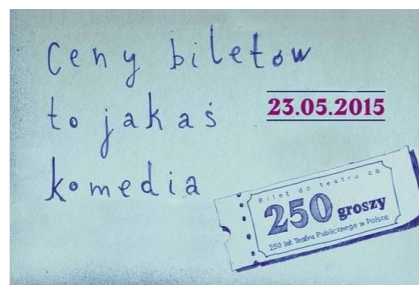 Ceny biletów
to jakaś
komedia
23.05.2015
Bilet do teatru za
250 groszy
250 lat Teatru Publicznego w Polsce